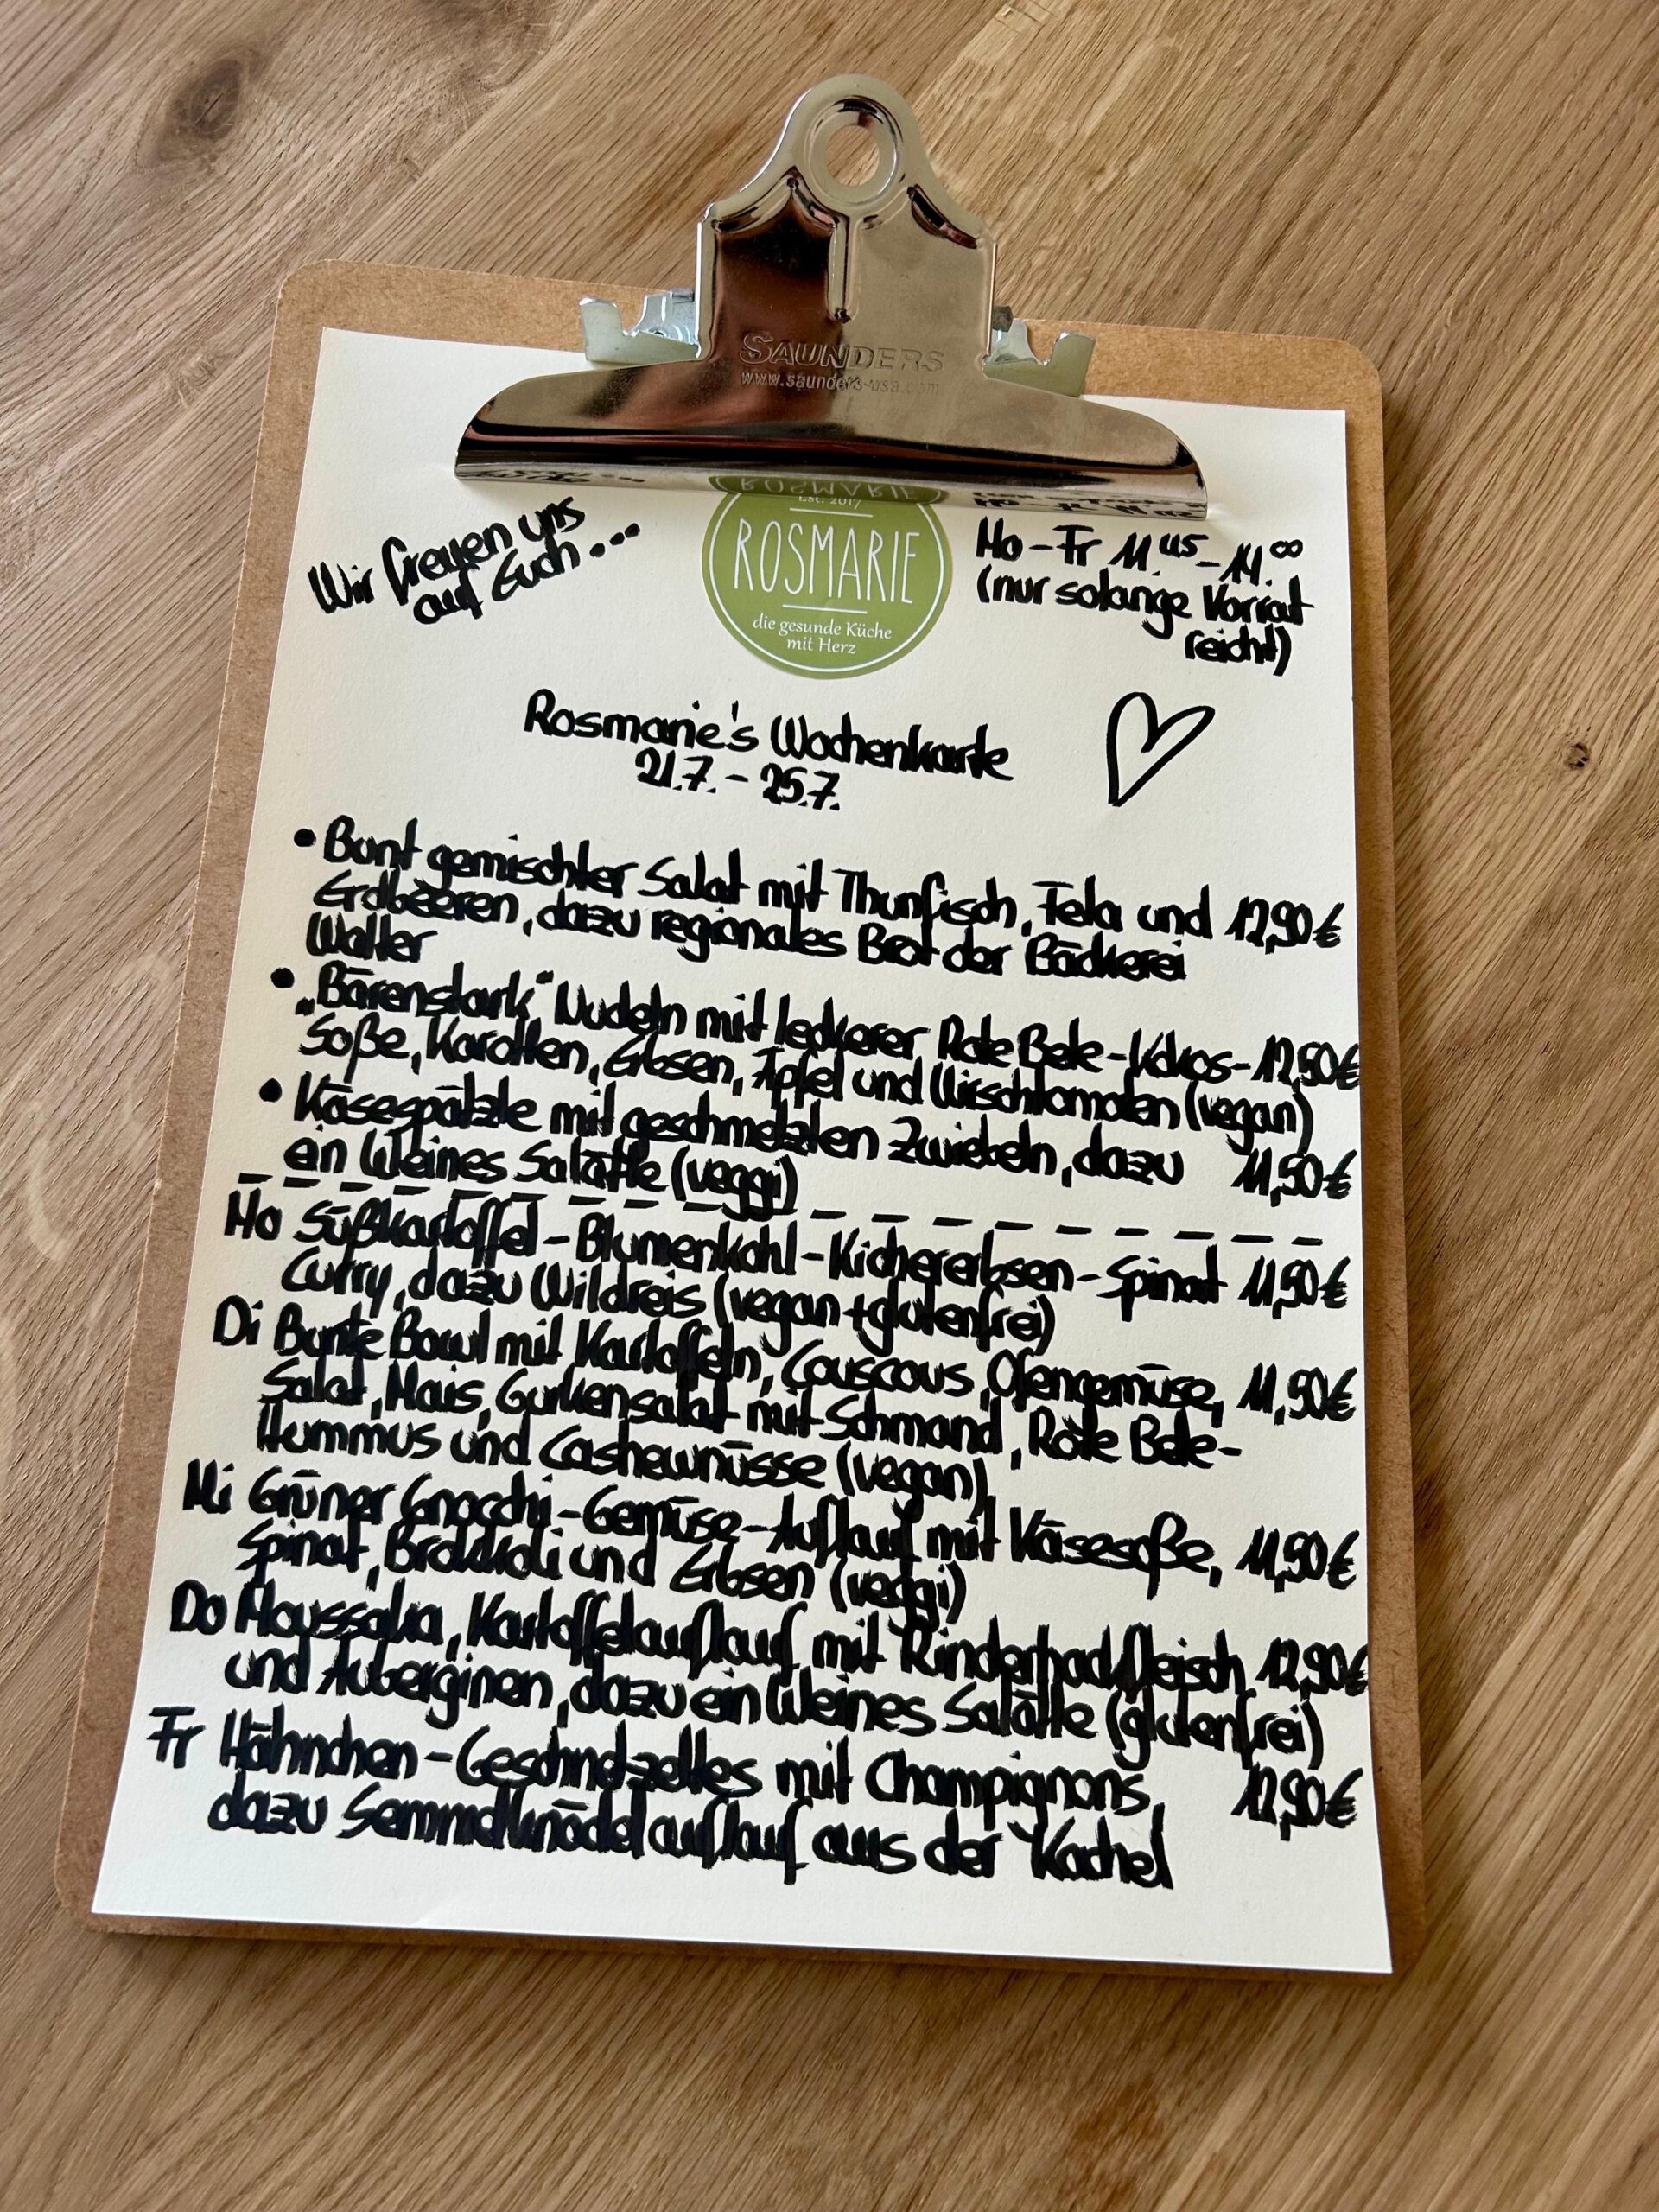 SAUNDERS
www.saunders-usa.com
Wir freuen uns
auf Euch...
EST. 2017
ROSMARIE
die gesunde Küche
mit Herz
Mo-Fr 11.45-14.00
(nur solange Vorrat
reicht)
Rosmarie's Wochenkarte
21.7. - 25.7.
• Bunt gemischter Salat mit Thunfisch, Feta und 12,90€
Erdbeeren, dazu regionales Brot der Bäckerei
Walter
• „Bärenstark" Nudeln mit leckerer Rote Bete-Kokos- 12,50€
Soße, Karotten, Erbsen, Äpfel und Kirschtomaten (vegan)
• Käsespätzle mit geschmelzten Zwiebeln, dazu 11,50€
ein kleines Salätle (veggi)
Mo Süßkartoffel-Blumenkohl-Kichererbsen-Spinat 11,50€
Curry, dazu Wildreis (vegan+glutenfrei)
Di Bunte Bowl mit Kartoffeln, Couscous, Ofengemüse, 11,50€
Salat, Mais, Gurkensalat mit Schmand, Rote Bete-
Hummus und Cashewnüsse (vegan)
Mi Grüner Gnocchi-Gemüse-Auflauf mit Käsesoße, 11,50€
Spinat, Brokkoli und Erbsen (veggi)
Do Moussaka, Kartoffelauflauf mit Rinderhackfleisch 12,90€
und Auberginen, dazu ein kleines Salätle (glutenfrei)
Fr Hähnchen-Geschnetzeltes mit Champignons, 12,90€
dazu Semmelknödelauflauf aus der Kachel